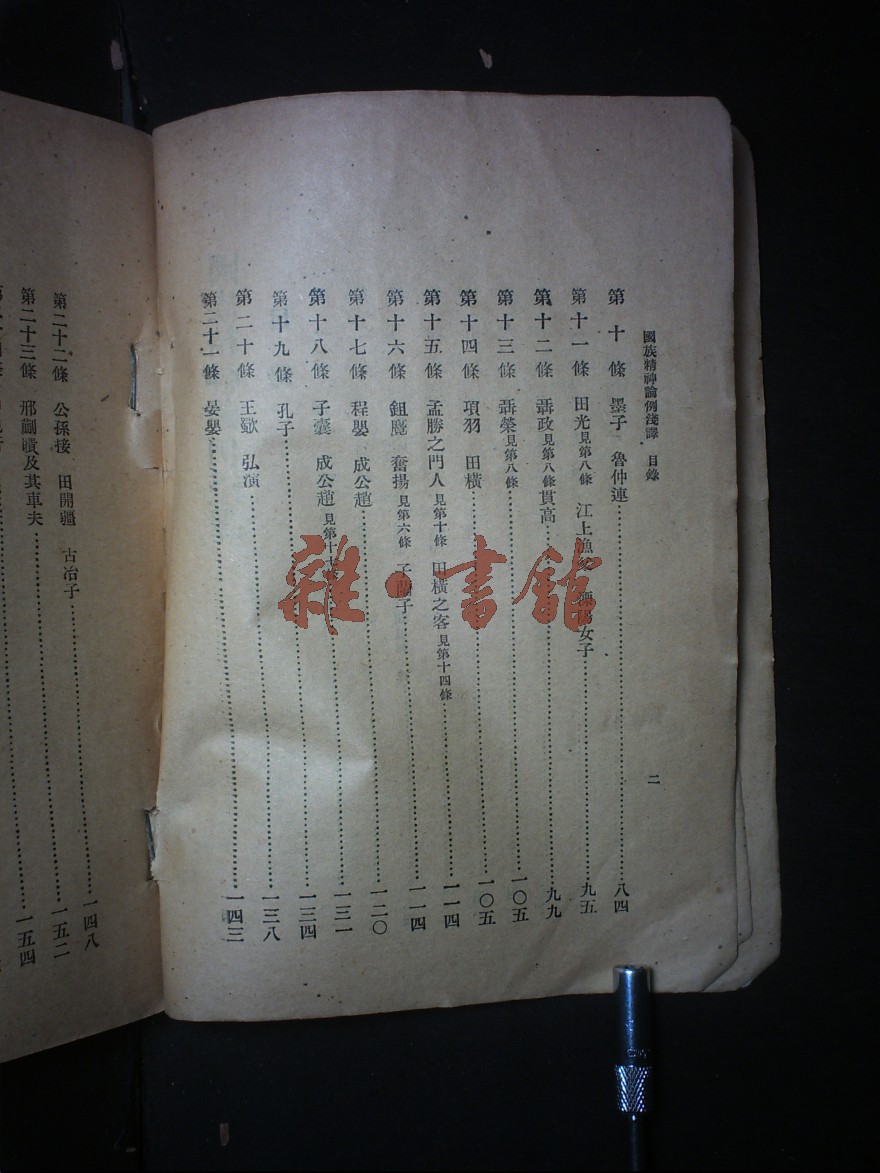 國族精神論例淺譯 目錄 二
第十條 墨子 魯仲連 八四
第十一條 田光見第八條 江上漁 女子 九五
第十二條 聶政見第八條 貫高 九九
第十三條 聶榮見第八條 一〇五
第十四條 項羽 田橫 一〇五
第十五條 孟勝之門人見第十條 田橫之客見第十四條 一一四
第十六條 鉏麑 奮揚見第六條 子蘭子 一一四
第十七條 程嬰 成公趙 一二〇
第十八條 子囊 成公趙見第十 一三一
第十九條 孔子 一三四
第二十條 王歜 弘演 一三八
第二十一條 晏嬰 一四三
第二十二條 公孫接 田開疆 古冶子 一四八
第二十三條 邢蒯瞶及其車夫 一五二
一五四
雜·書館